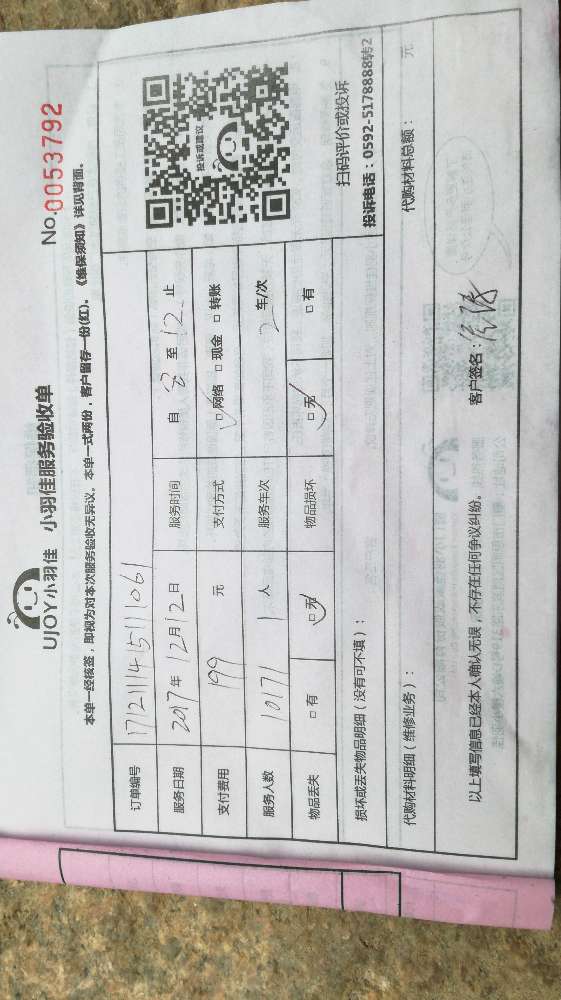 UJOY小羽佳 小羽佳服务验收单
No.0053792
本单一经核签，即视为对本次服务验收无异议。本单一式两份，客户留存一份(红)。《维保须知》详见背面。
订单编号 171211145111061
服务日期 2017年12月12日 服务时间 自 8 至 12 止
支付费用 199 元 支付方式 □网络 □现金 □转账
服务人数 10171 1 人 服务车次 2 车/次
物品丢失 □有 □无 物品损坏 □无 □有
投诉或建议
扫码评价或投诉
投诉电话：0592-5178888转2
损坏或丢失物品明细（没有可不填）：
代购材料明细（维修业务）： 代购材料总额： 元
以上填写信息已经本人确认无误，不存在任何争议纠纷。 客户签名：